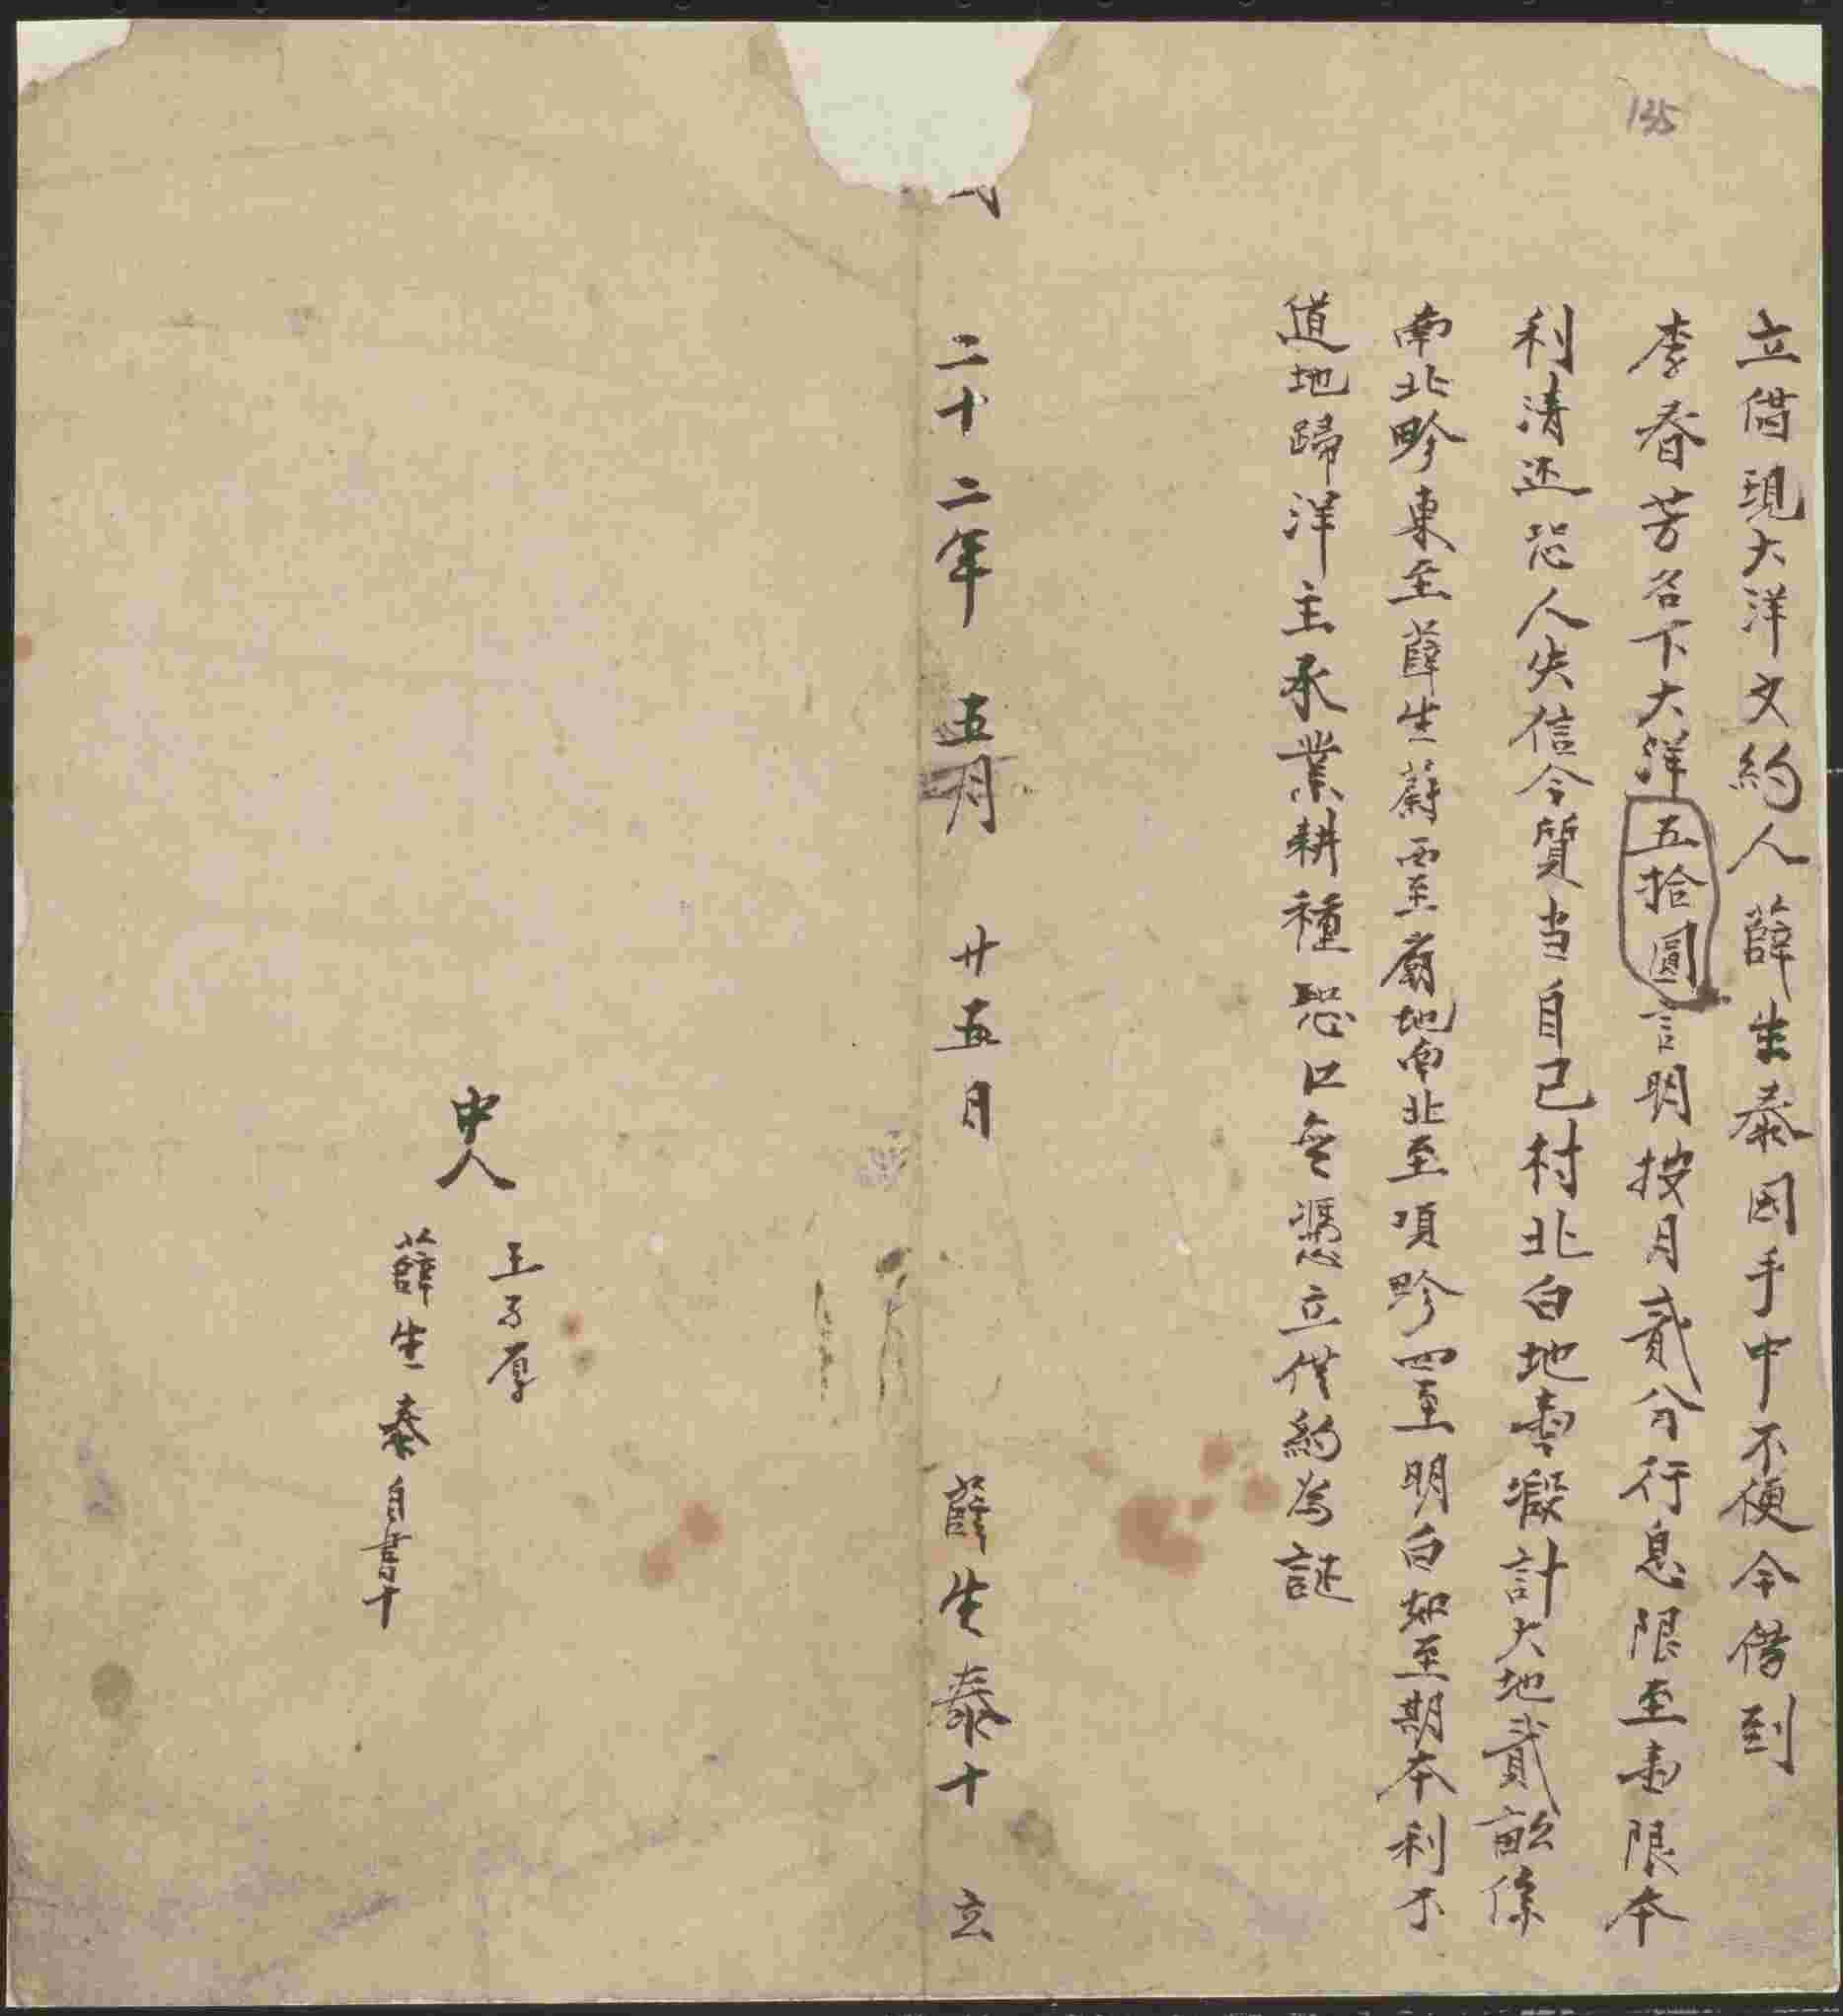 135
立借現大洋文約人薛生泰因手中不便今借到
李春芳名下大洋五拾圓言明按月貳分行息限至限本
利清还恐人失信今質当自己村北白地壹段計大地貳畝係
南北畛東至薛生蔚西至廟地南北至項畛四至明白如至期本利不
道地歸洋主承業耕種恐口無憑立借約為証
二十二年 五月 廿五日 薛生泰十 立
中人
王子厚
薛生泰自書十